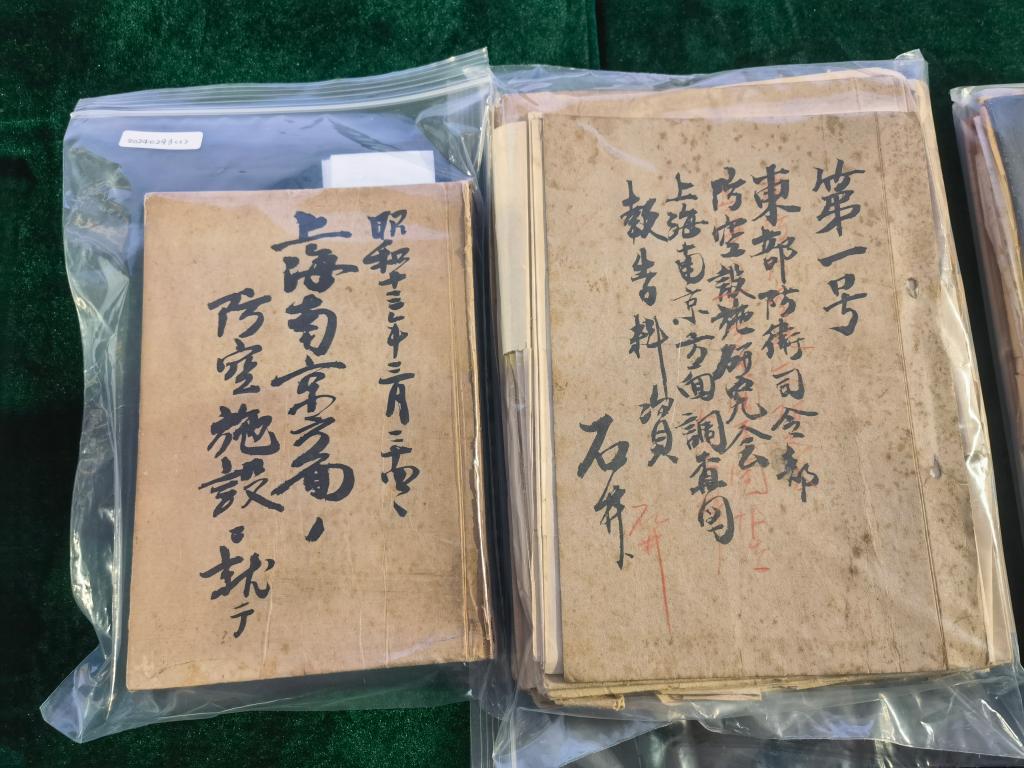 昭和十三年三月二十四、
上海南京方面ノ
防空施設ニ就テ
第一号
東部防衛司令部
防空設施研究会
上海南京方面調査図
報告料資
石井
石井